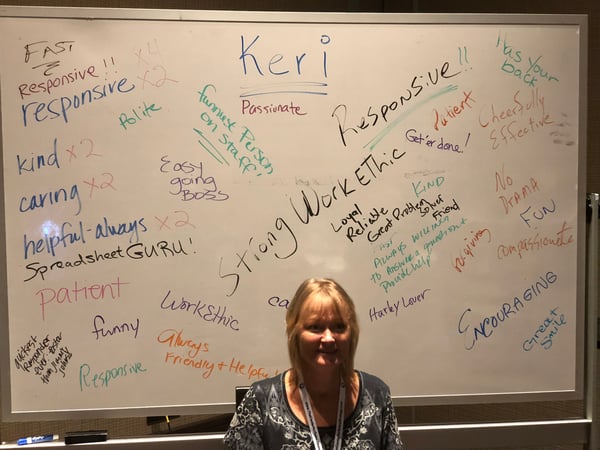 Keri
Passionate
FAST
&
RESPONSIVE!! x4
responsive x2
Polite
kind x2
caring x2
helpful-always x2
Spreadsheet GURU!
patient
funny
Work Ethic
quickest
Responder
ever - better
than Jimmy
Johns
Responsive
Always
Friendly + Helpful
Easy
going
Boss
funniest Person
on staff!
Responsive!!
Strong Work Ethic
Loyal
Reliable
Great Problem
Solver
Friend
KIND
Always willing
to answer a question &
Provide help
Harley Lover
Get'er done!
Patient
Has Your
back
Cheerfully
Effective
No
DRAMA
FUN
Compassionate
ENCOURAGING
Great
Smile